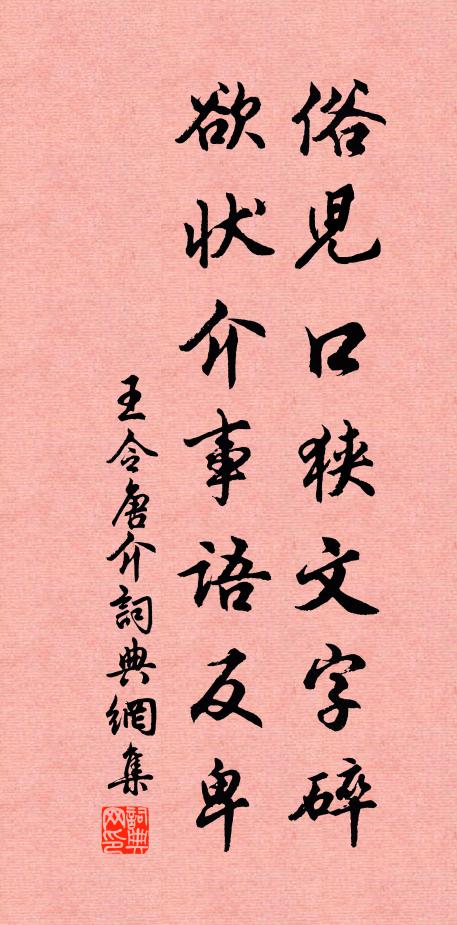 俗児口狭文字碎
欲状介事語反卑
王令唐介詞典網集
詞典网印